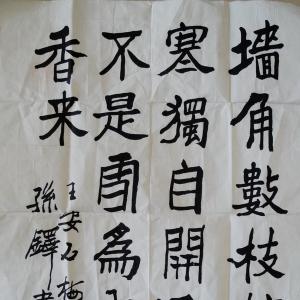 墙角數枝
寒獨自開
不是雪為
香来
王安石梅
孫鐸書